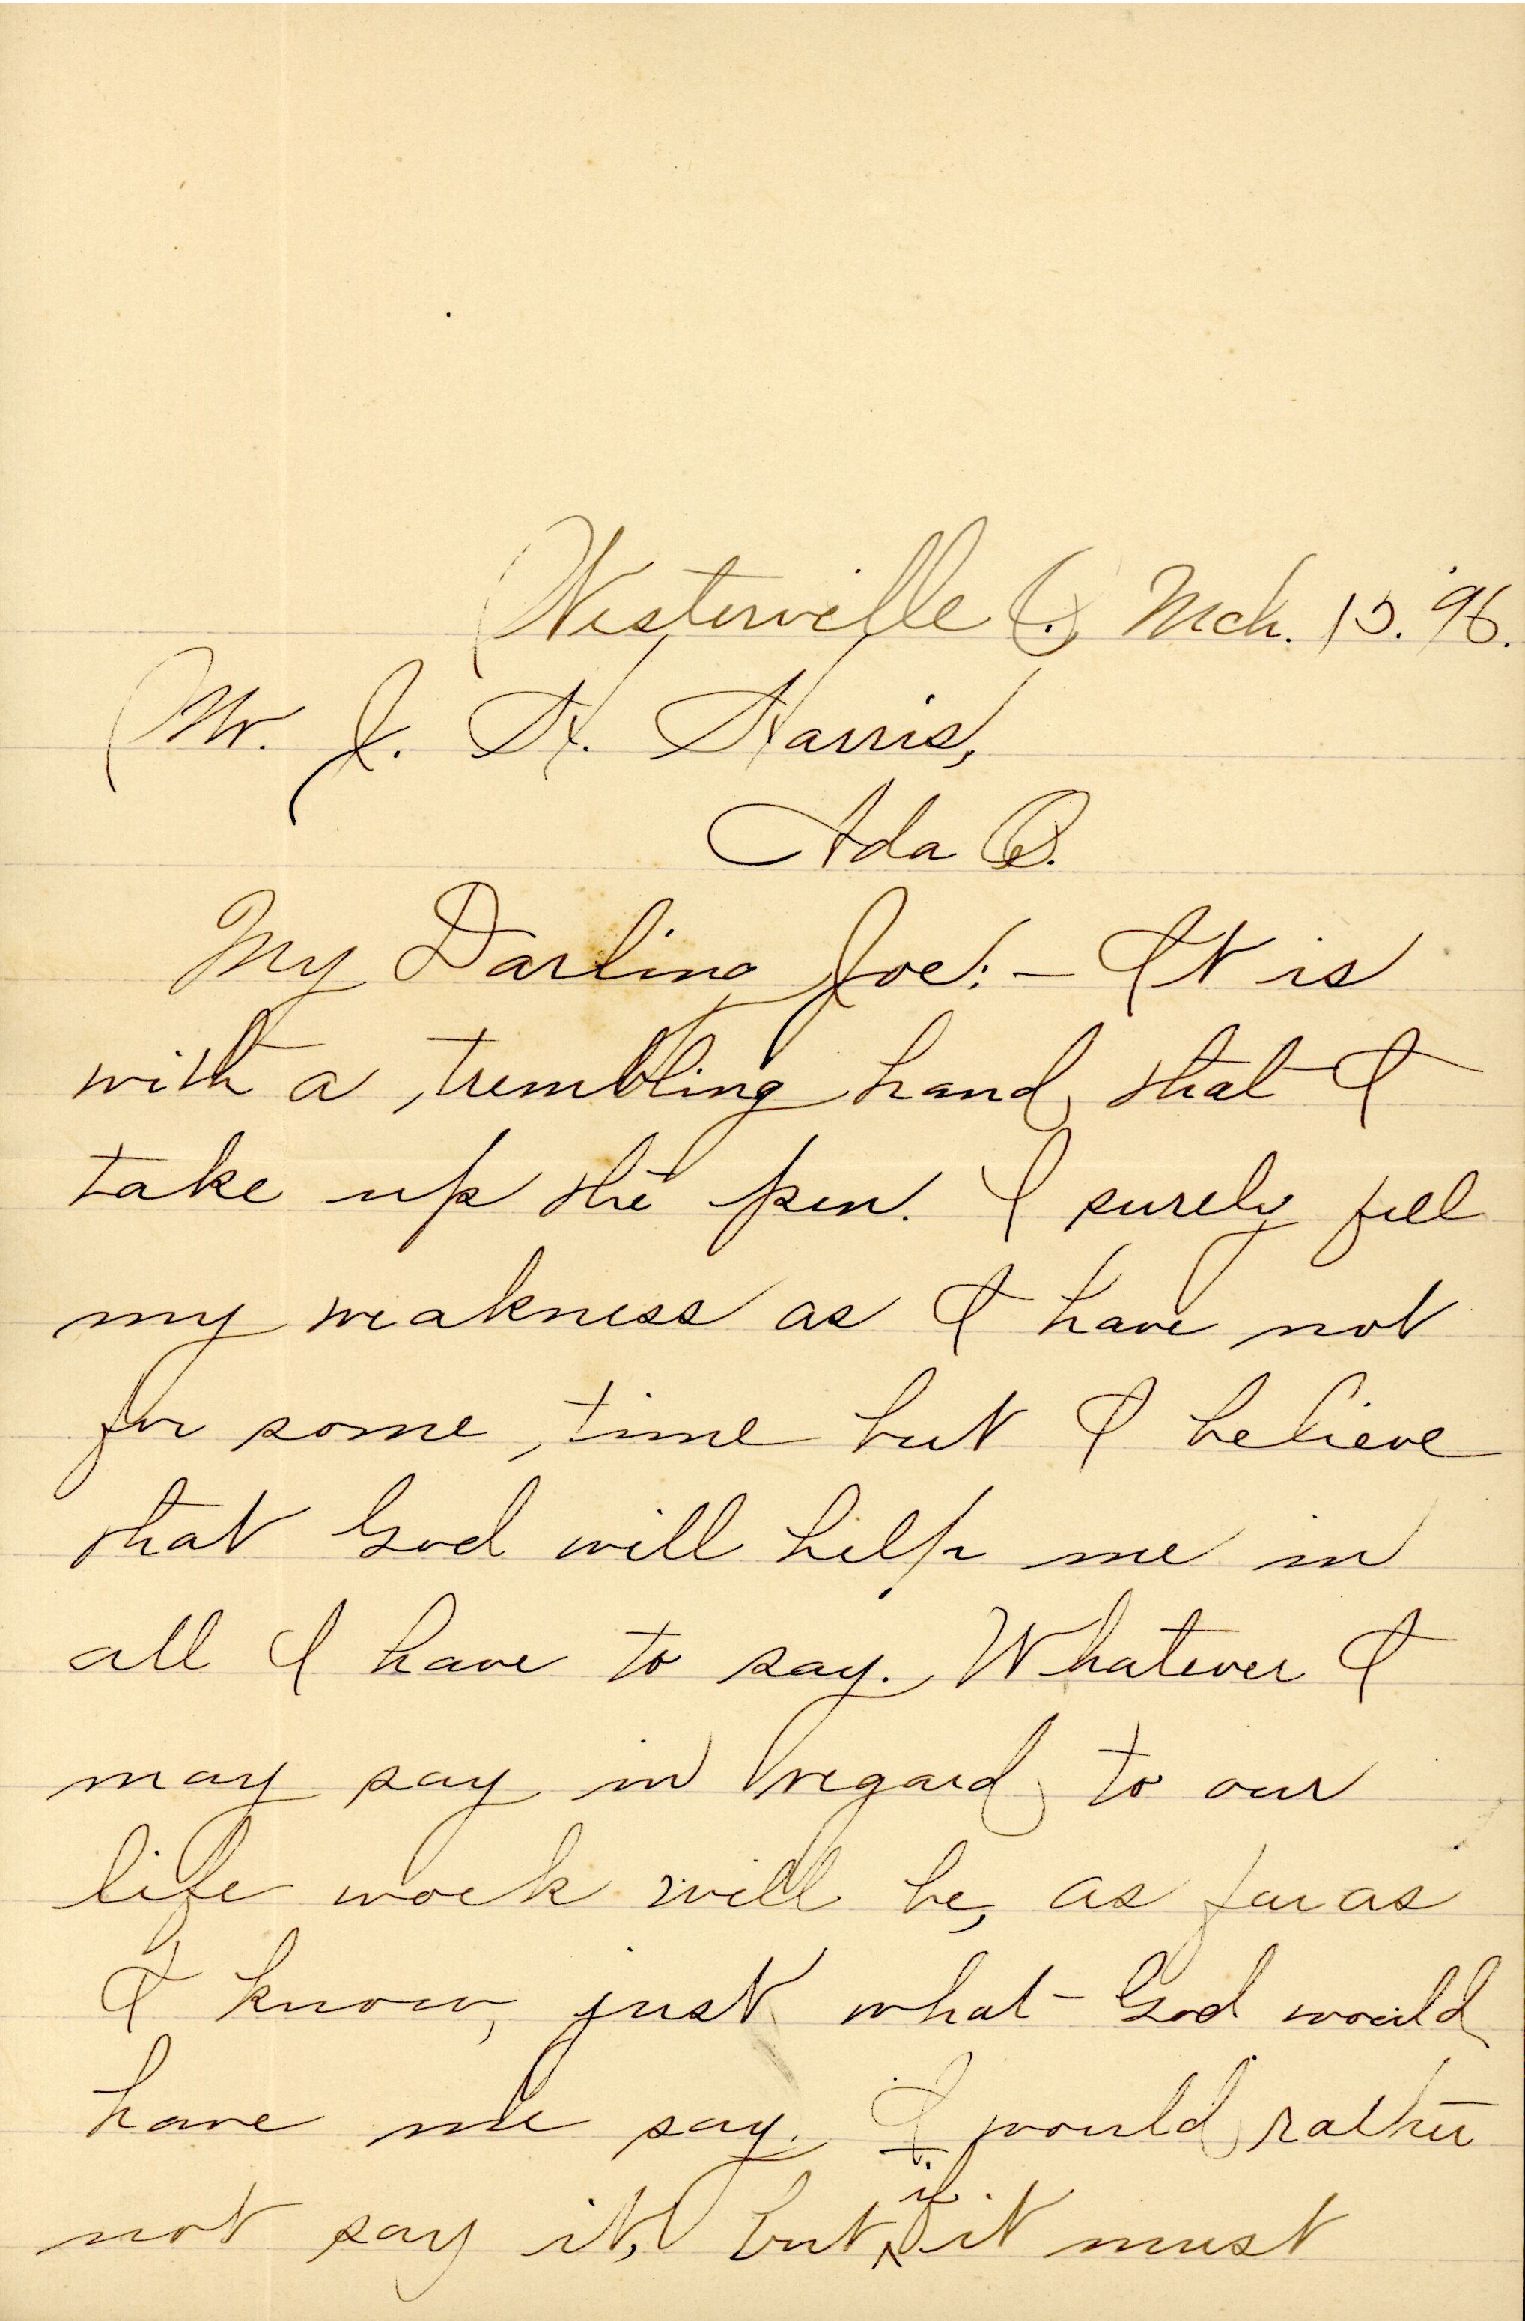 Westerville O. Mch. 15. '96.
Mr. J. H. Harris,
Ada O.
My Darling Joe:- It is
with a trembling hand that I
take up the pen. I surely feel
my weakness as I have not
for some time but I believe
that God will help me in
all I have to say. Whatever I
may say in regard to our
life work will be, as far as
I know, just what God would
have me say. I would rather
not say it, but if it must